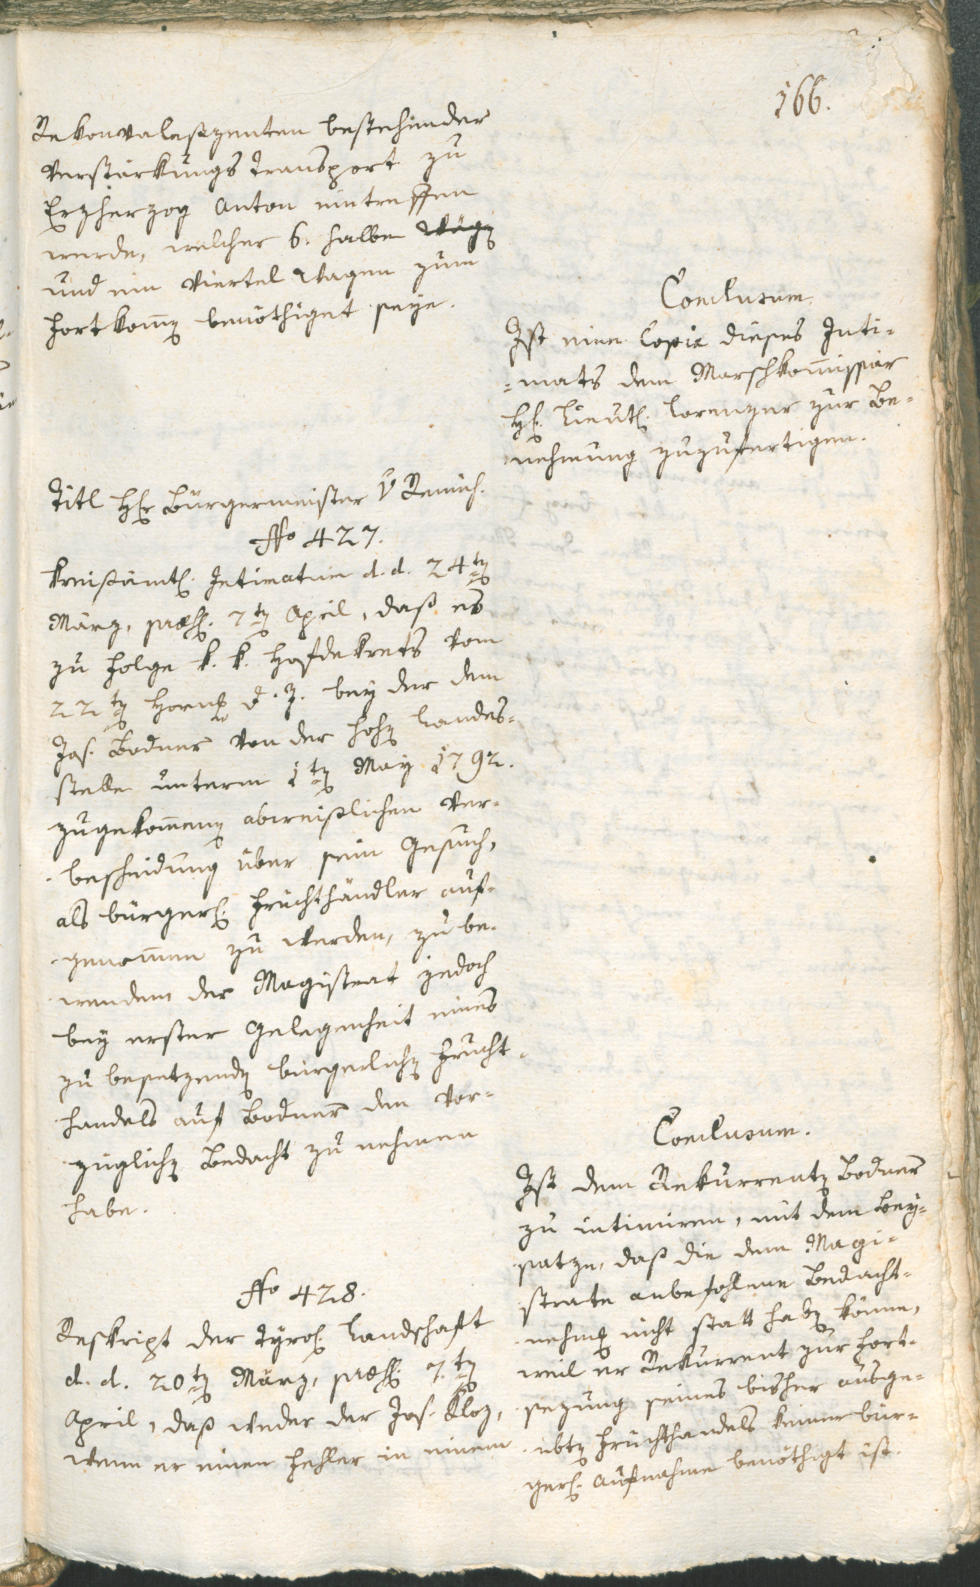 166.
Rekonvaleszenten bestehender
Verstärkungs Transport zu
Erzherzog Anton eintreffen
werde, welcher 6. halbe Wägen
und ein Viertel Wagen zum
Fortkomen benöthiget seye.
Conclusum.
Ist eine Copia dieses Inti-
-mats dem Marschkomissär
H. Lieut. Lorenzer zur Be-
nehmung zuzufertigen.
Titl Hr Bürgermeister
No 427.
Kreisämtl. Intimatum d. d. 24ten
März, præs. 7ten April, daß es
zu Folge k. k. Hofdekrets vom
22ten Hornung d. J. bey der dem
Jos. Bodner von der hohen Landes-
stelle unterm 1ten May 1792.
zugekommenen abweißlichen Ver-
bescheidung über sein Gesuch,
als bürgerl. Fruchthändler auf-
genommen zu werden, zu be-
wenden der Magistrat jedoch
bey erster Gelegenheit eines
zu besetzenden bürgerlichen Frucht-
handels auf Bodner den Vor-
züglichen Bedacht zu nehmen
habe.
Conclusum.
Ist dem Rekurrenten Bodner
zu intimiren, mit dem Bey-
satze, daß die dem Magi-
strate anbefohlene Bedacht-
nehmung nicht statt haben könne,
weil er Rekurrent zur Fort-
sezung seines bisher ausge-
übten Fruchthandels keiner bür-
gerl. Aufnahme benöthigt ist.
No 428.
Reskript der Tyrol. Landschaft
d. d. 20ten März, præs. 7ten
April, daß weder der Jos. Kloz,
wenn er einen Fehler in einem